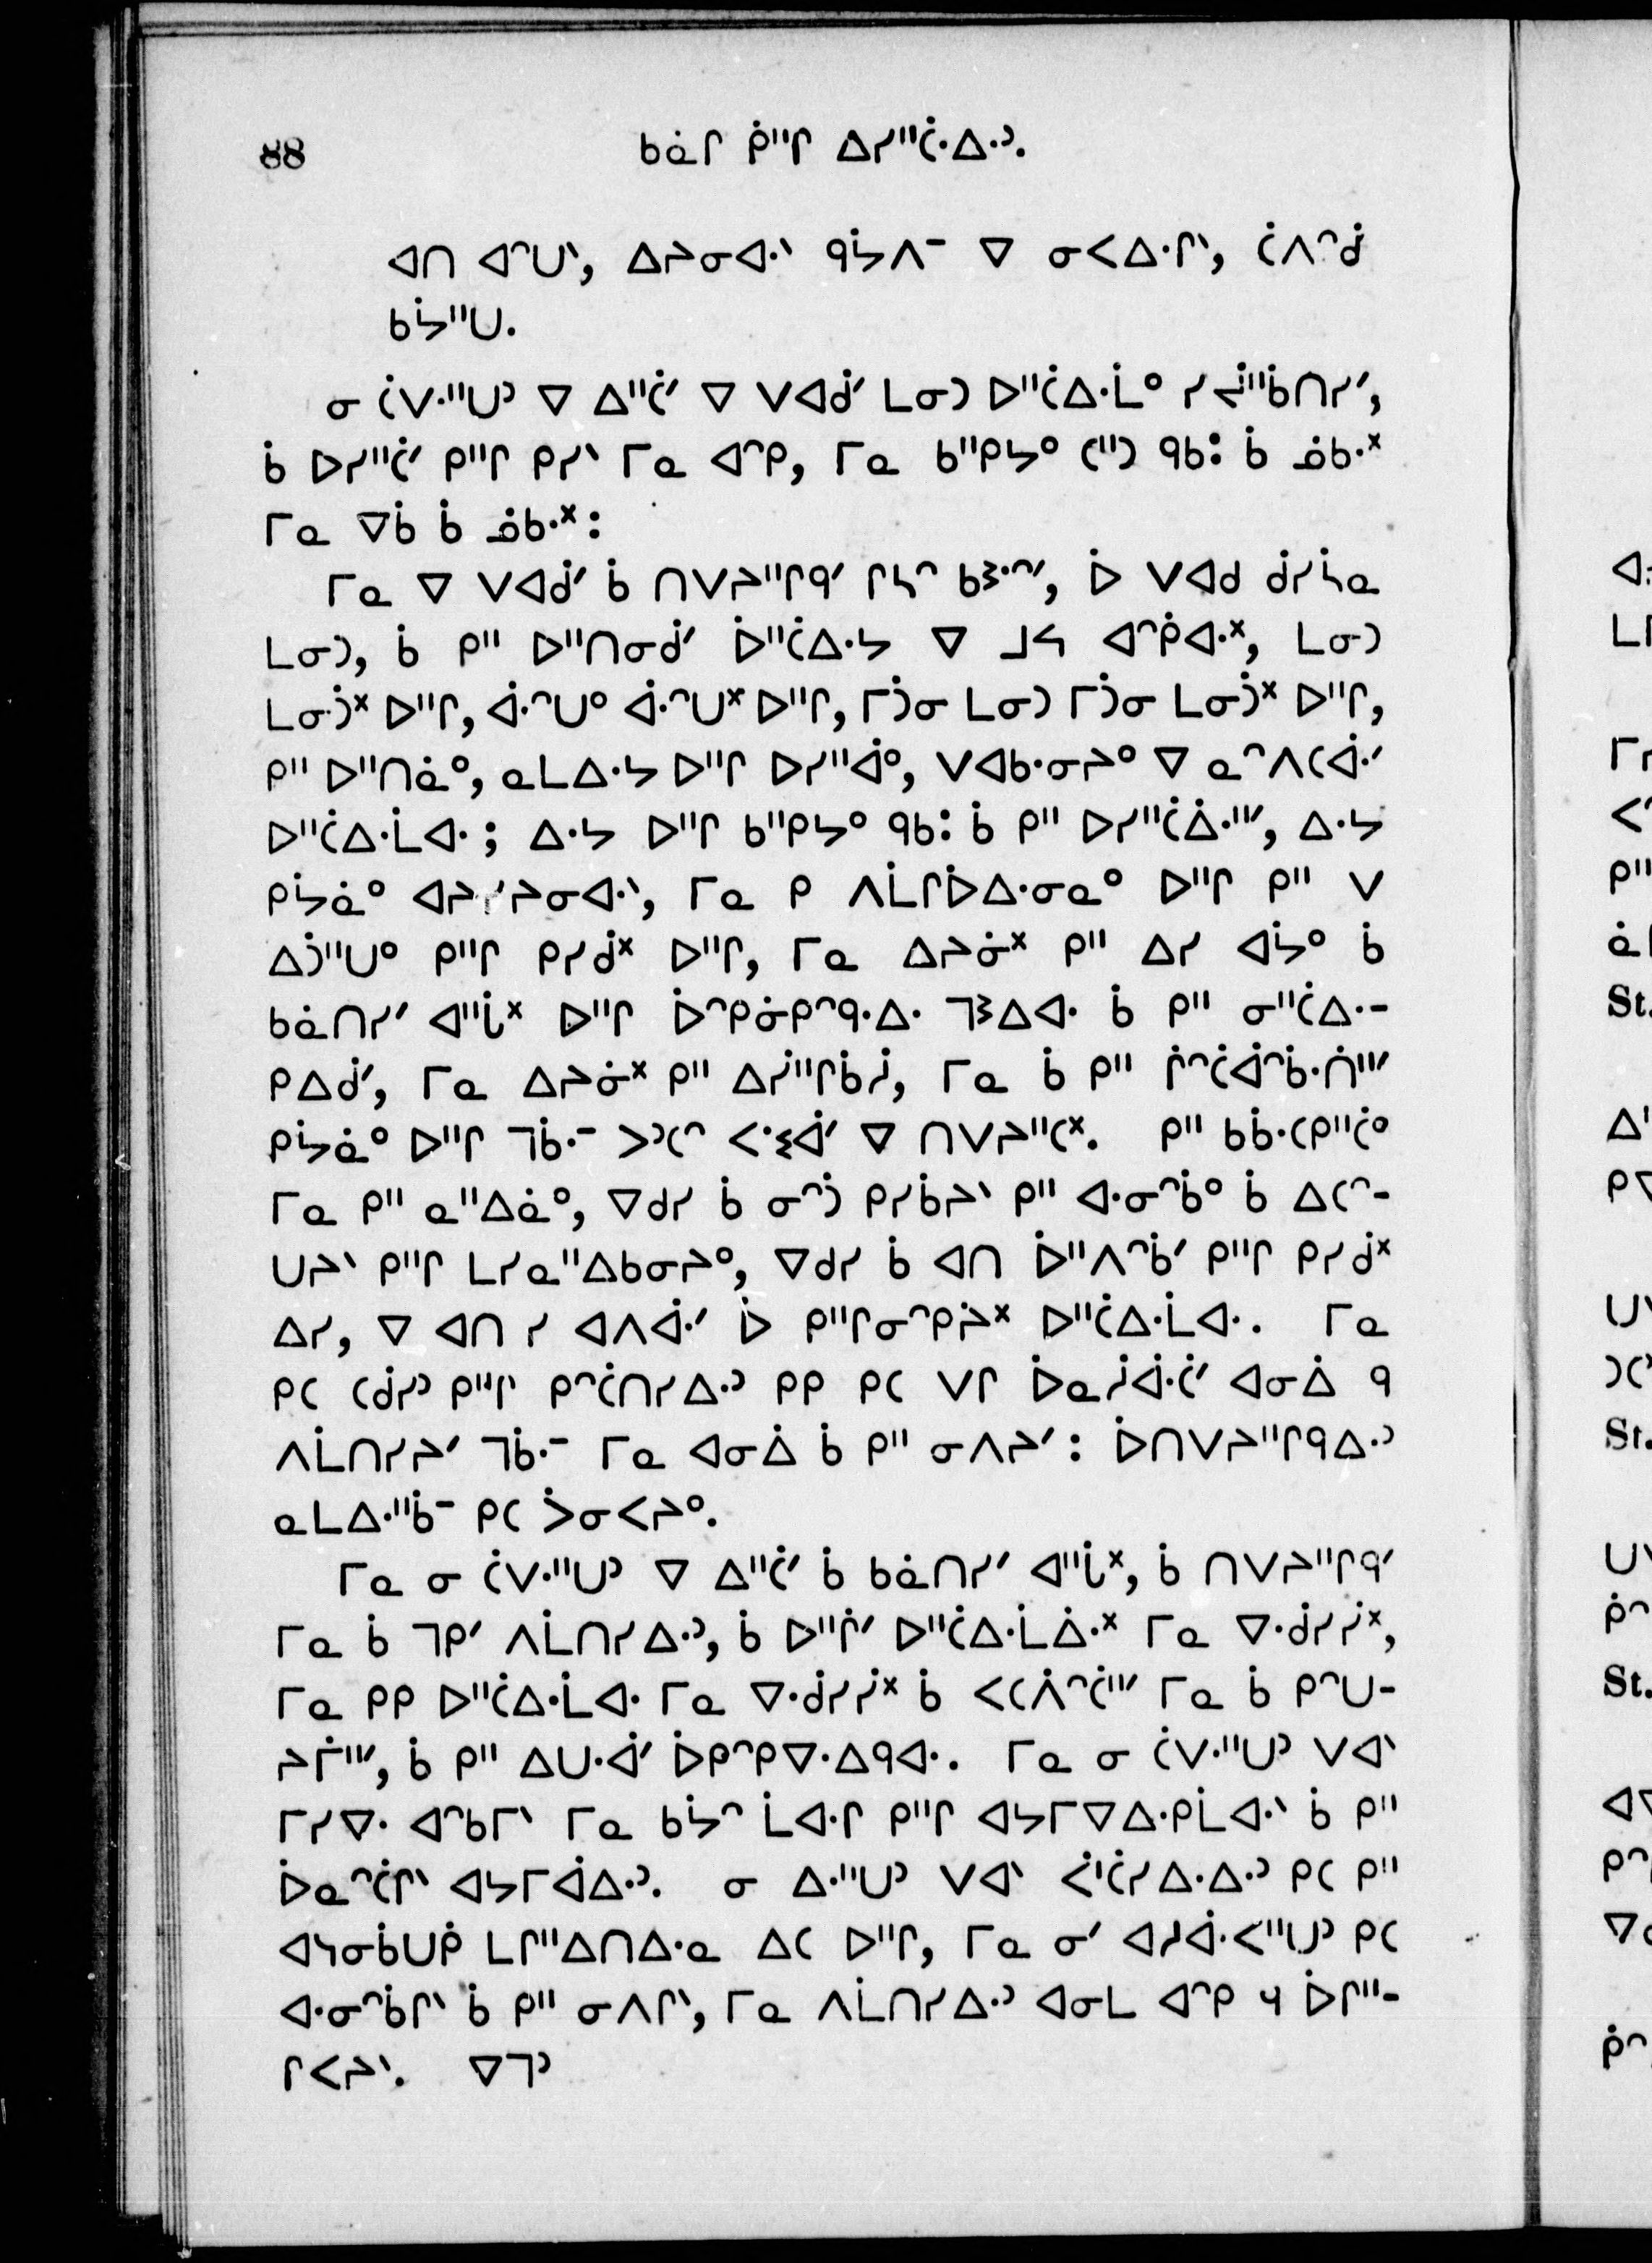 88 ᑲᓈᒋ ᑮᐦᒋ ᐃᓯᐦᑖᐧᐃᐧᐣ.
ᐊᑎ ᐊᐢᑌᐠ, ᐃᔨᓂᐊᐧᐠ ᑫᔮᐱᐨ ᐁ ᓂᐸᐃᐧᒋᐠ, ᑖᐱᐢᑰ
ᑲᔮᐦᑌ.
ᓂ ᑖᐯᐧᐦᑌᐣ ᐁ ᐃᐦᑖᐟ ᐁ ᐯᐊᑰᐟ ᒪᓂᑐ ᐅᐦᑖᐃᐧᒫᐤ ᓯᔫᐦᑳᑎᓯᐟ,
ᑳ ᐅᓯᐦᑖᐟ ᑭᐦᒋ ᑭᓯᐠ ᒥᓇ ᐊᐢᑭ, ᒥᓇ ᑲᐦᑭᔭᐤ ᑕᐦᑐ ᑫᑲ: ᑳ ᓅᑲᐧᕽ
ᒥᓇ ᐁᑳ ᑳ ᓅᑲᐧᕽ:
ᒥᓇ ᐁ ᐯᐊᑰᐟ ᑳ ᑎᐯᔨᐦᒋᑫᐟ ᒋᓴᐢ ᑲᕒᐧᐢᐟ, ᐆ ᐯᐊᑯ ᑰᓯᓵᓇ
ᒪᓂᑐ, ᑳ ᑭᐦ ᐅᐦᑎᓂᑰᐟ ᐆᐦᑖᐃᐧᔭ ᐁ ᒧᓴ ᐊᐢᑮᐊᐧᕽ, ᒪᓂᑐ
ᒪᓂᑑᕽ ᐅᐦᒋ, ᐋᐧᐢᑌᐤ ᐋᐧᐢᑌᕽ ᐅᐦᒋ, ᒥᑑᓂ ᒪᓂᑐ ᒥᑑᓂ ᒪᓂᑑᕽ ᐅᐦᒋ,
ᑭᐦ ᐅᐦᑎᓈᐤ, ᓇᒪᐃᐧᔭ ᐅᐦᒋ ᐅᓯᐦᐋᐤ, ᐯᐊᑲᐧᓂᔨᐤ ᐁ ᓇᐢᐱᑕᐋᐧᐟ
ᐅᐦᑖᐃᐧᒫᐊᐧ; ᐃᐧᔭ ᐅᐦᒋ ᑲᐦᑭᔭᐤ ᑫᑲ: ᑳ ᑭᐦ ᐅᓯᐦᑖᐄᐧᐦᐟ, ᐃᐧᔭ
ᑭᔮᓈᐤ ᐊᔨᓯᔨᓂᐊᐧᐠ, ᒥᓇ ᑭ ᐱᒫᒋᐆᐃᐧᓂᓇᐤ ᐅᐦᒋ ᑭᐦ ᐯ
ᐃᑑᐦᑌᐤ ᑭᐦᒋ ᑭᓯᑰᕽ ᐅᐦᒋ, ᒥᓇ ᐃᔨᓃᕽ ᑭᐦ ᐃᓯ ᐊᔮᐤ ᑳ
ᑲᓈᑎᓯᐟ ᐊᐦᒑᕽ ᐅᐦᒋ ᐆᐢᑭᓃᑭᐢᑫᐧᐃᐧ ᒣᕒᐃᐊᐧ ᑳ ᑭᐦ ᓂᐦᑖᐃᐧ-
ᑭᐃᑰᐟ, ᒥᓇ ᐃᔨᓃᕽ ᑭᐦ ᐃᓰᐦᒋᑳᓲ, ᒥᓇ ᑳ ᑭᐦ ᒌᐢᑖᐋᐢᑳᐧᑏᐦᐟ
ᑭᔮᓈᐤ ᐅᐦᒋ ᒣᑳᐧᐨ ᐳᐣᑕᐢ ᐸᐧᕒᐋᐟ ᐁ ᑎᐯᔨᐦᑕᕽ. ᑭᐦ ᑲᑳᐧᑕᑭᐦᑖᐤ
ᒥᓇ ᑭᐦ ᓇᐦᐃᓈᐤ, ᐁᑯᓯ ᑳ ᓂᐢᑑ ᑭᓯᑳᔨᐠ ᑭᐦ ᐊᐧᓂᐢᑳᐤ ᑳ ᐃᑕᐢ-
ᑌᔨᐠ ᑭᐦᒋ ᒪᓯᓇᐦᐃᑲᓂᔨᐤ, ᐁᑯᓯ ᑳ ᐊᑎ ᐆᐦᐱᐢᑳᐟ ᑭᐦᒋ ᑭᓯᑰᕽ
ᐃᓯ, ᐁ ᐊᑎ ᓯ ᐊᐱᐋᐧᐟ ᐆ ᑭᐦᒋᓂᐢᑮᔩᕽ ᐅᐦᑖᐃᐧᒫᐊᐧ. ᒥᓇ
ᑭᑕ ᑕᑰᓯᐣ ᑭᐦᒋ ᑭᐢᑖᑎᓯᐃᐧᐣ ᑭᑭ ᑭᑕ ᐯᒋ ᐆᓇᓲᐋᐧᑖᐟ ᐊᓂᐄ ᑫ
ᐱᒫᑎᓯᔨᐟ ᒣᑳᐧᐨ ᒥᓇ ᐊᓂᐄ ᑳ ᑭᐦ ᓂᐱᔨᐟ: ᐆᑎᐯᔨᐦᒋᑫᐃᐧᐣ
ᓇᒪᐃᐧᐦᑳᐨ ᑭᑕ ᐴᓂᐸᔨᐤ.
ᒥᓇ ᓂ ᑖᐯᐧᐦᑌᐣ ᐁ ᐃᐦᑖᐟ ᑳ ᑲᓈᑎᓯᐟ ᐊᐦᒑᕽ, ᑳ ᑎᐯᔨᐦᒋᑫᐟ
ᒥᓇ ᑳ ᒣᑭᐟ ᐱᒫᑎᓯᐃᐧᐣ, ᑳ ᐅᐦᒌᐟ ᐅᐦᑖᐃᐧᒫᐄᐧᕽ ᒥᓇ ᐁᐧᑰᓯᓰᕽ,
ᒥᓇ ᑭᑭ ᐅᐦᑖᐃᐧᒫᐊᐧ ᒥᓇ ᐁᐧᑰᓯᓰᕽ ᑳ ᐸᑕᐲᐢᑖᐦᐟ ᒥᓇ ᑳ ᑭᐢᑌ-
ᔨᒦᐦᐟ, ᑳ ᑭᐦ ᐃᑌᐧᐋᐟ ᐆᑭᐢᑭᐁᐧᐃᑫᐊᐧ. ᒥᓇ ᓂ ᑖᐯᐧᐦᑌᐣ ᐯᐊᐠ
ᒥᓯᐁᐧ ᐊᐢᑲᒥᐠ ᒥᓇ ᑲᔮᐢ ᒫᐊᐧᒋ ᑭᐦᒋ ᐊᔭᒥᐁᐃᐧᑭᒫᐊᐧᐠ ᑳ ᑭᐦ
ᐆᓇᐢᑖᒋᐠ ᐊᔭᒥᐋᐃᐧᐣ. ᓂ ᐃᐧᐦᑌᐣ ᐯᐊᐠ ᐹᑊᑖᓯᐃᐧᐃᐧᐣ ᑭᑕ ᑭᐦ
ᐊᓭᓂᑳᑌᑮ ᒪᒋᐦᐃᑎᐃᐧᓇ ᐃᑕ ᐅᐦᒋ, ᒥᓇ ᓂᐟ ᐊᓱᐋᐧᐸᐦᑌᐣ ᑭᑕ
ᐊᐧᓂᐢᑳᒋᐠ ᑳ ᑭᐦ ᓂᐱᒋᐠ, ᒥᓇ ᐱᒫᑎᓯᐃᐧᐣ ᐊᓂᒪ ᐊᐢᑭ ᔦ ᐆᒋᐦ-
ᒋᐸᔨᐠ. ᐁᒣᐣ